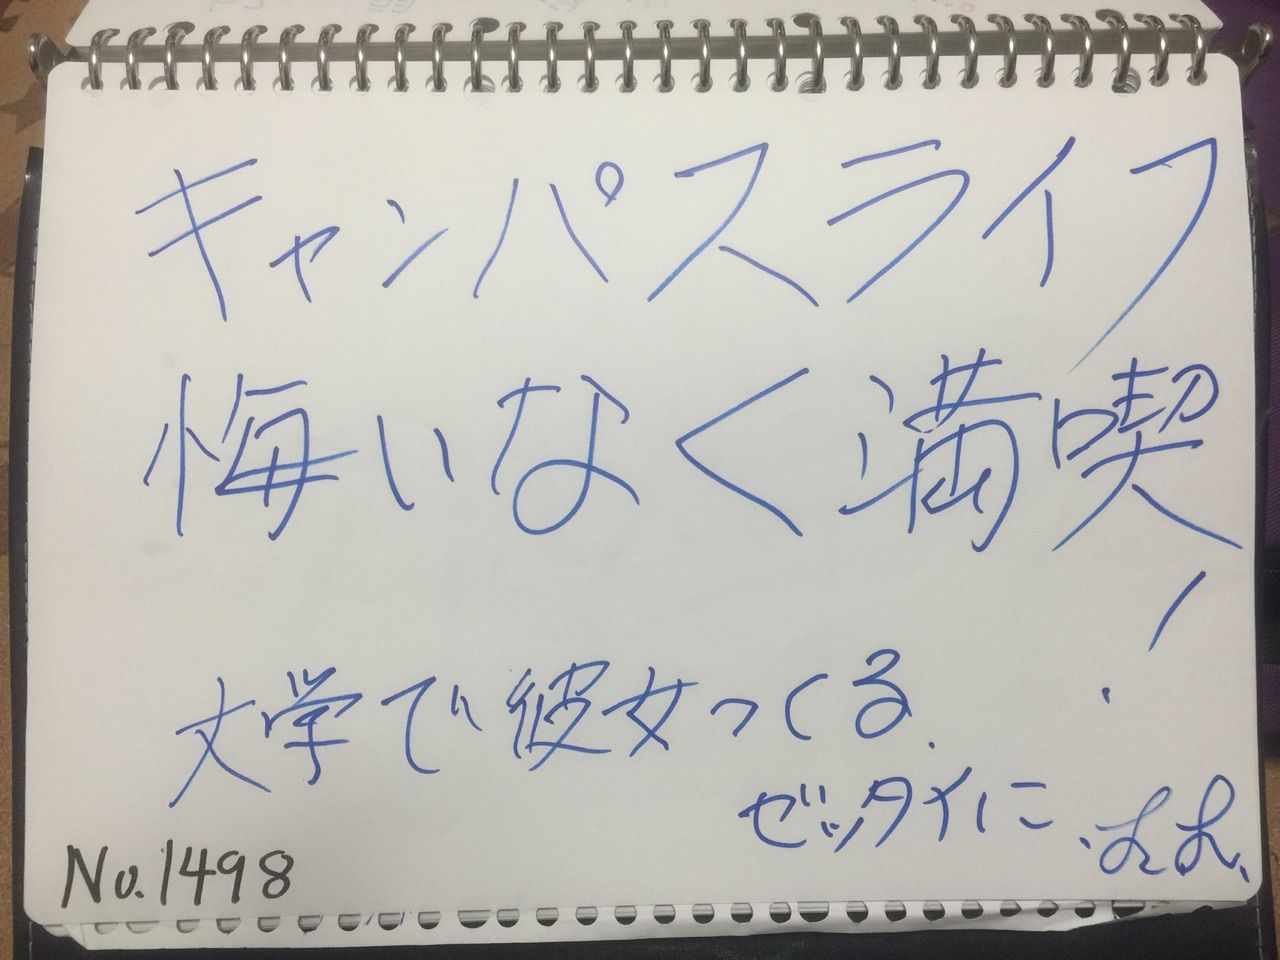 キャンパスライフ
悔いなく満喫!
大学で彼女つくる.
ゼッタイに
No.1498